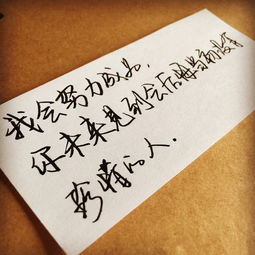 我会努力成为，
你未来见到会后悔当初没有
珍惜的人.